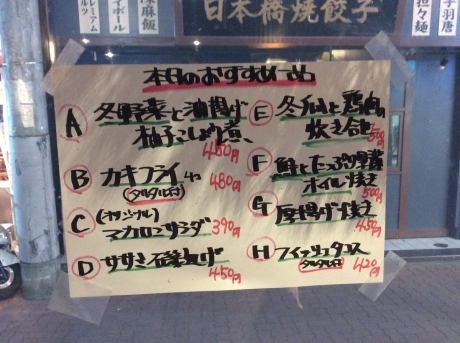 日本橋焼餃子
担々麺
麻飯
本日のおすすめ一品
A 冬野菜と油揚げ
柚子こしょう煮
450円
B カキフライ 4ヶ 480円
(タルタル付)
C (オリジナル)
マカロニサラダ 390円
D ササミ石垣揚げ
450円
E 冬瓜と鶏肉の
炊き合せ 500円
F 鮭とたっぷり野菜
ホイル焼き
500円
G 厚揚げ焼き
450円
H フィッシュタコス
(タルタル付) 420円